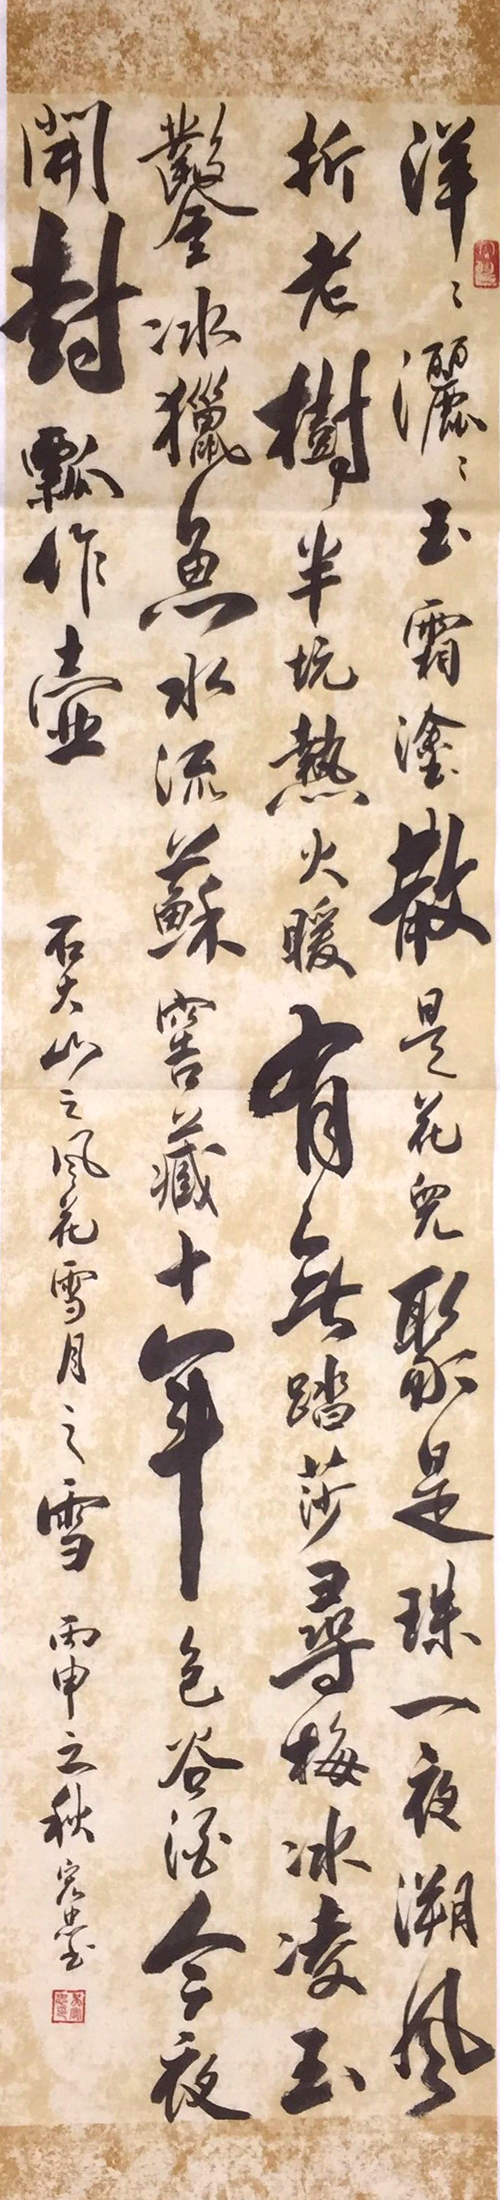 洋〻灑〻玉霜塗散是花兒聚是珠一夜溯風
折老樹半坑熱火暖有無踏莎尋梅冰凌玉
鑿冰獵魚水流蘇窖藏十年包谷酒今夜
開封瓢作壺
石大山之风花雪月之雪 丙申之秋